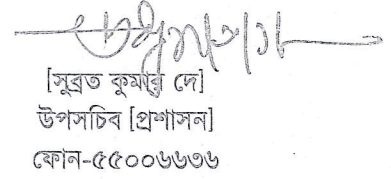 [সুব্রত কুমার দে]
উপসচিব [প্রশাসন]
ফোন-৫৫০০৬৬৩৬